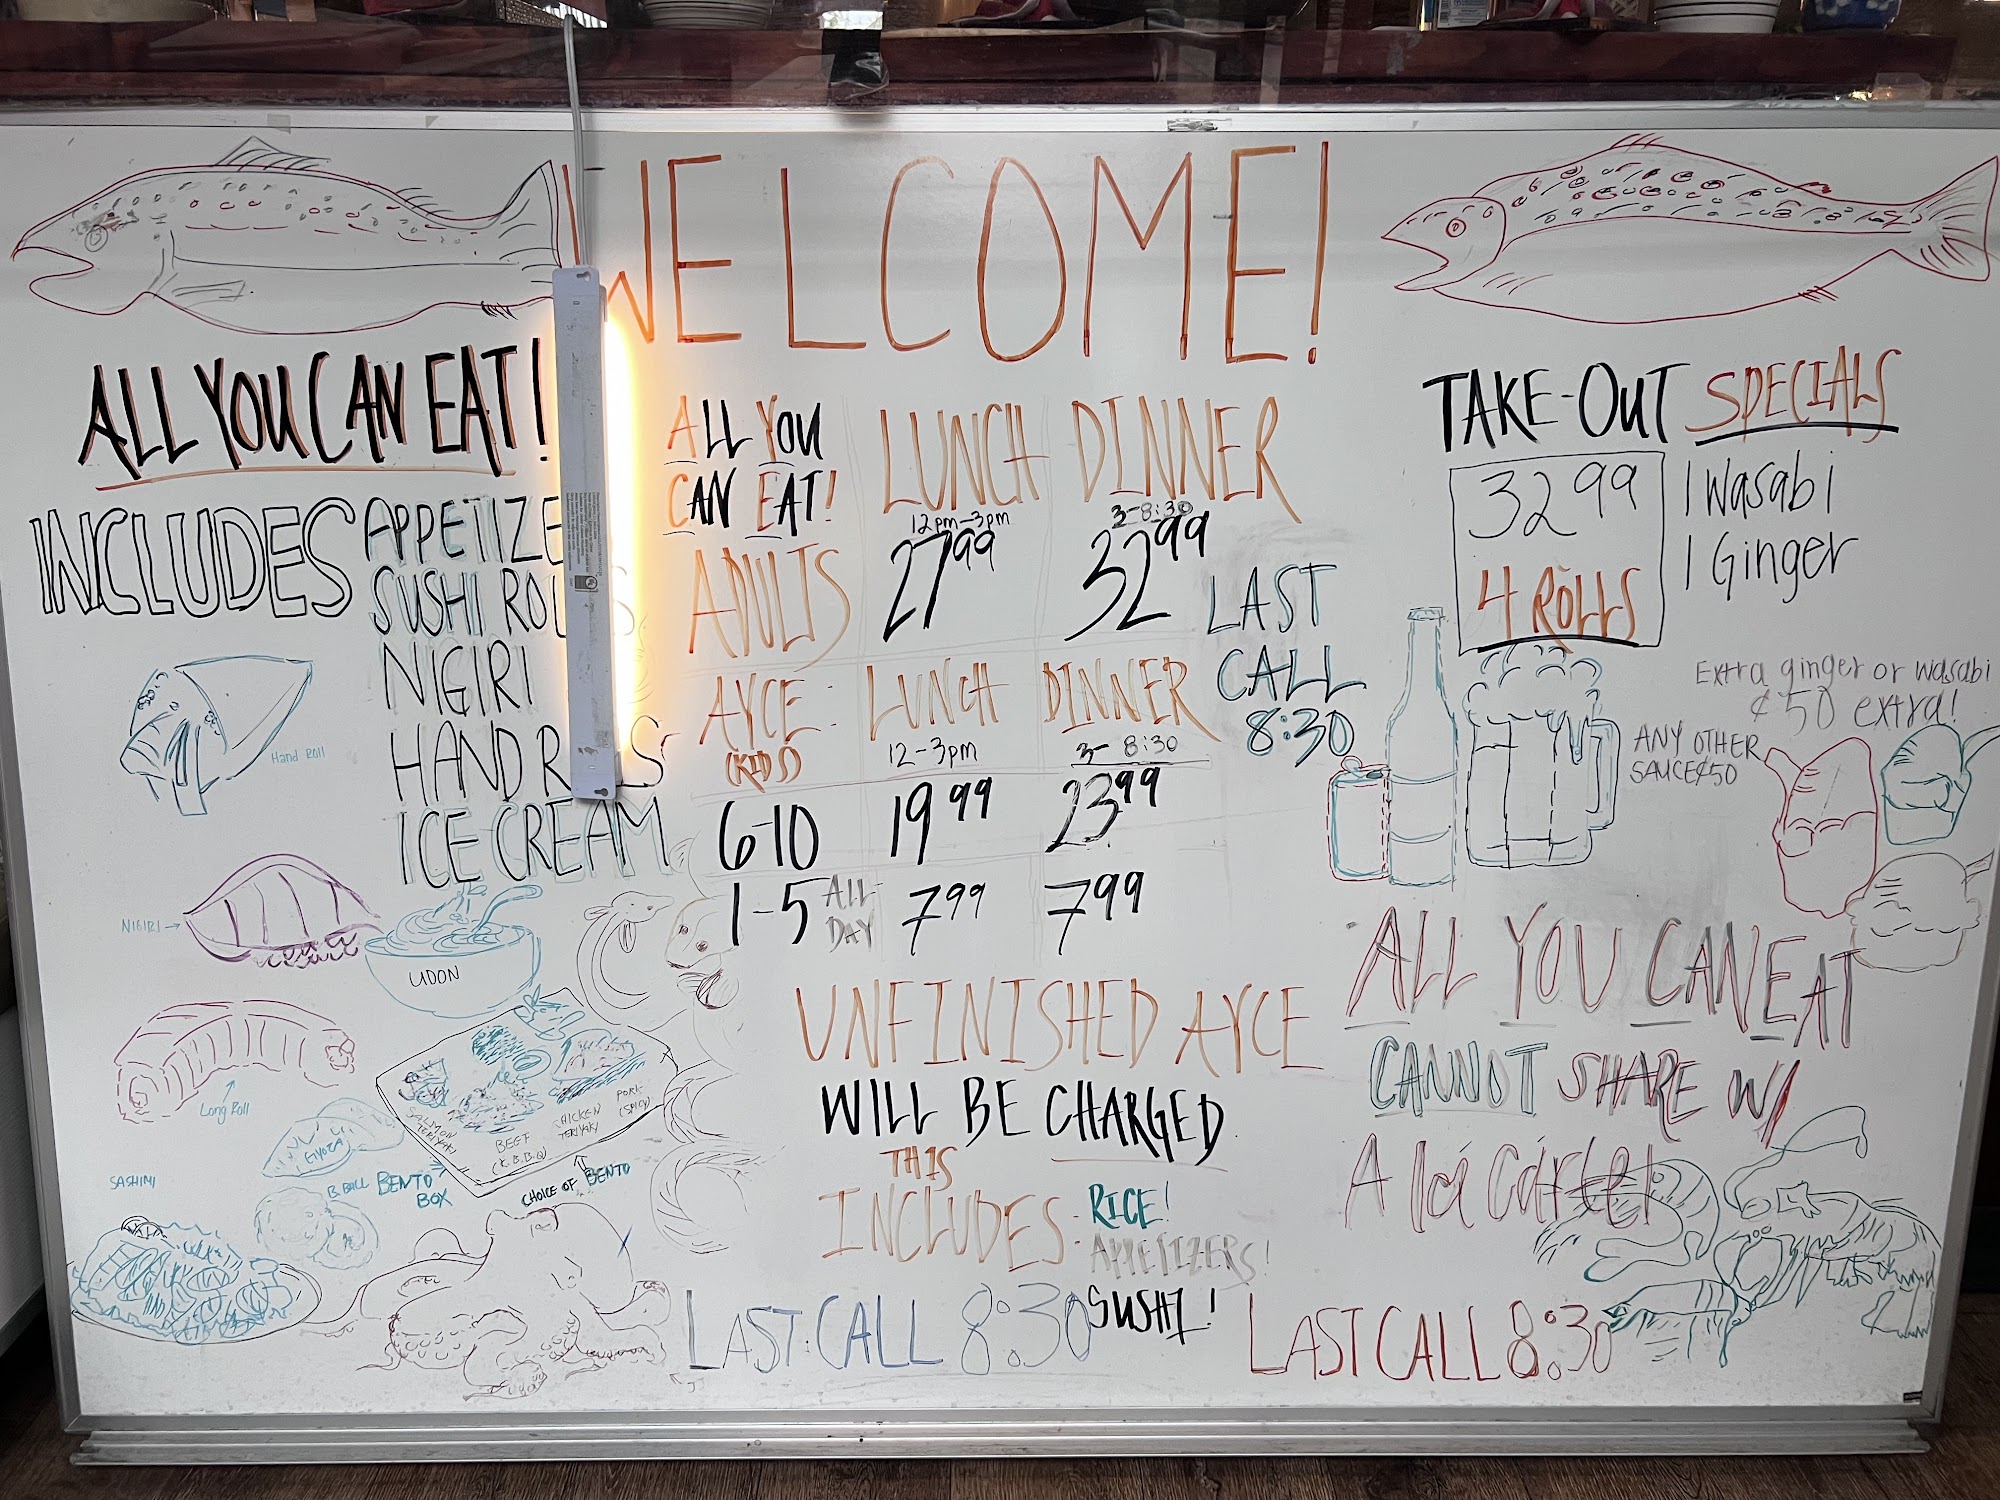 WELCOME!
ALL YOU CAN EAT!
INCLUDES
APPETIZE
SUSHI ROLLS
NIGIRI
HAND ROLLS
ICE CREAM
Hand Roll
NIGIRI →
UDON
Long Roll
GYOZA
SASHIMI
B.BALL
BENTO
BOX
SALMON
TERIYAKI
BEEF
(K.B.B.Q)
CHICKEN
TERIYAKI
PORK
(SPICY)
CHOICE OF BENTO
ALL YOU
CAN EAT!
LUNCH
DINNER
12pm-3pm
3-8:30
ADULTS
27 99
32 99
AYCE:
(KIDS)
LUNCH
DINNER
12-3pm
3-8:30
6-10
19 99
23 99
1-5 ALL DAY
7 99
7 99
LAST
CALL
8:30
UNFINISHED AYCE
WILL BE CHARGED
THIS
INCLUDES:
RICE!
APPETIZERS!
SUSHI!
LAST CALL 8:30
TAKE-OUT SPECIALS
32 99
4 ROLLS
1 Wasabi
1 Ginger
Extra ginger or wasabi
¢50 extra!
ANY OTHER
SAUCE ¢50
ALL YOU CAN EAT
CANNOT SHARE W/
A la Carte!
LAST CALL 8:30